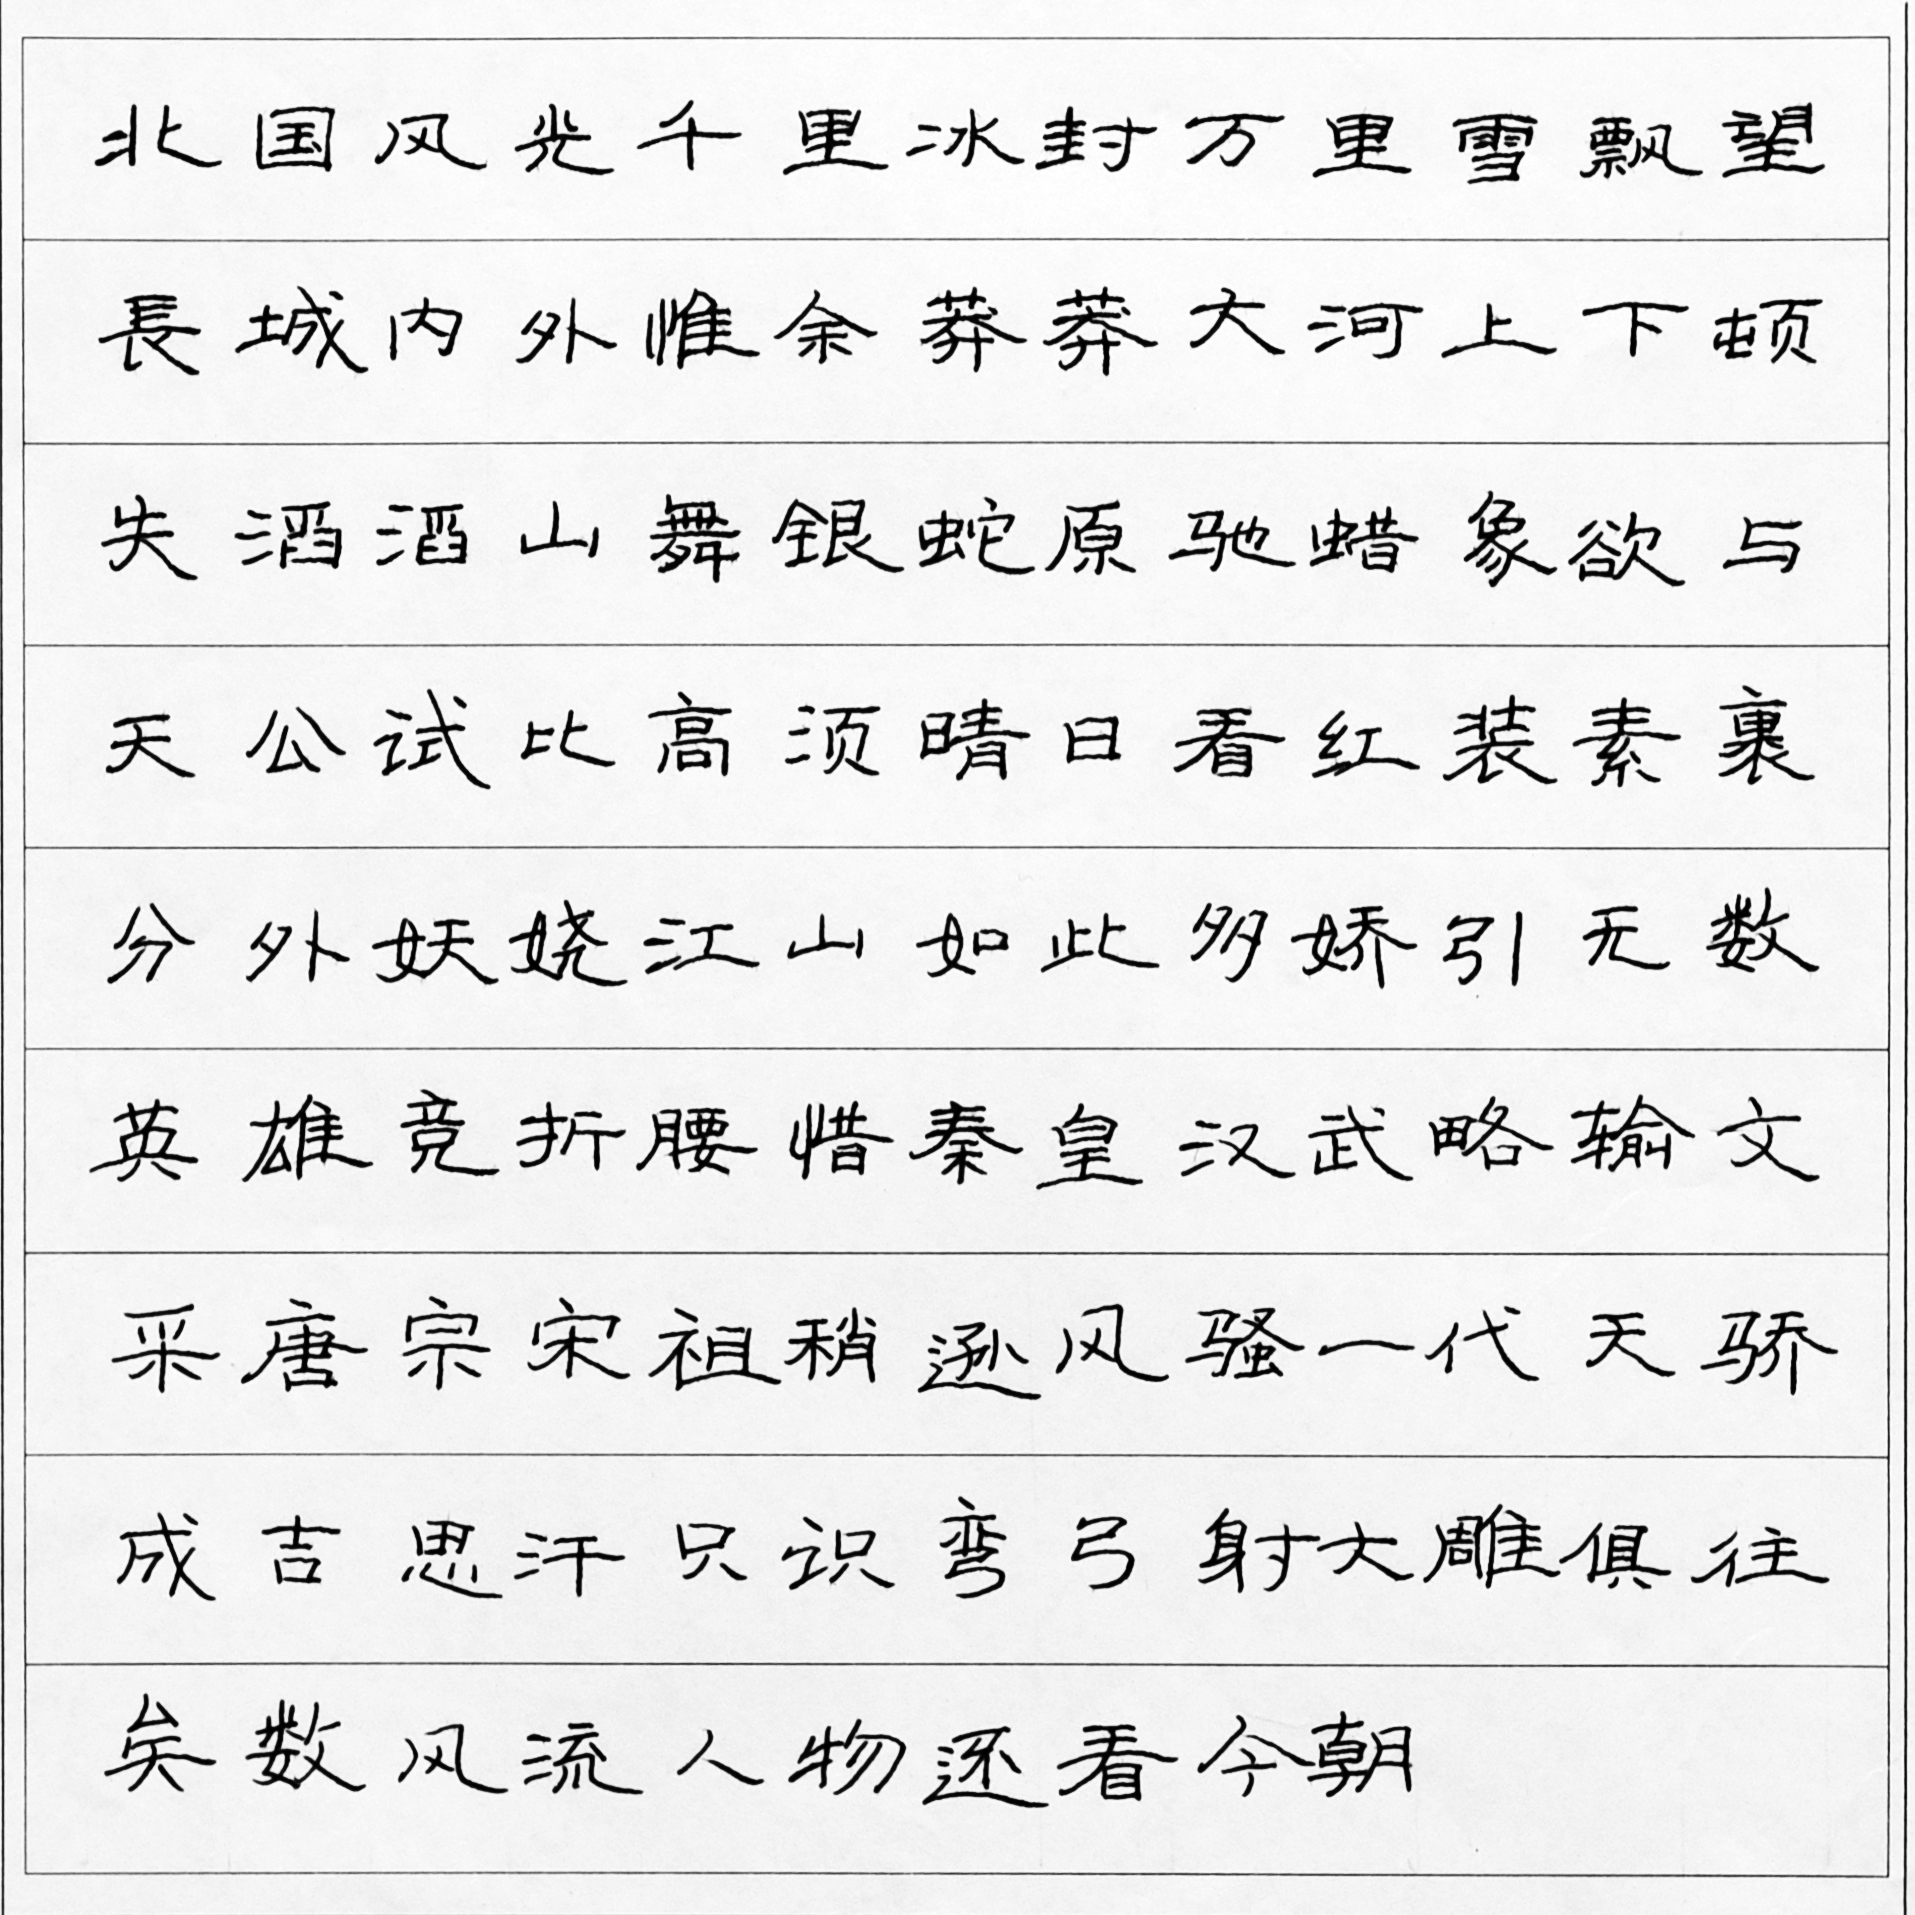 北国风光千里冰封万里雪飘望
長城内外惟余莽莽大河上下顿
失滔滔山舞银蛇原驰蜡象欲与
天公试比高须晴日看红装素裹
分外妖娆江山如此多娇引无数
英雄竞折腰惜秦皇汉武略输文
采唐宗宋祖稍逊风骚一代天骄
成吉思汗只识弯弓射大雕俱往
矣数风流人物还看今朝